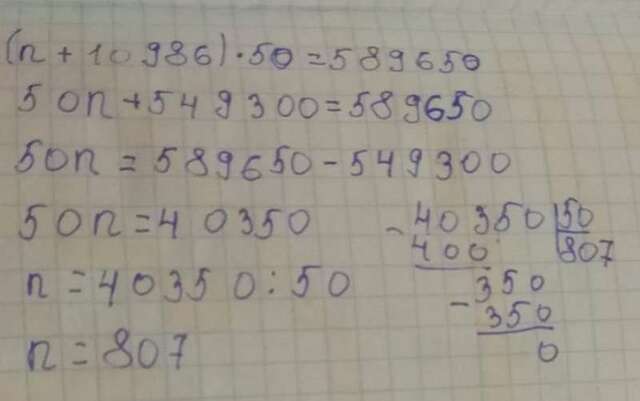 (n + 10 986) · 50 = 589650
50n + 549300 = 589650
50n = 589650 - 549300
50n = 40350
n = 40350 : 50
n = 807
- 40350 | 50
400 | 807
350
- 350
0